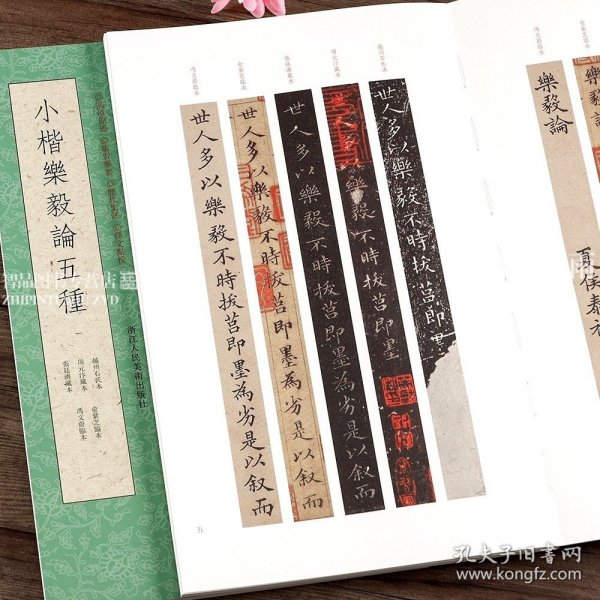 小楷樂毅論五種
越州石氏本
項元汴藏本
張廷濟藏本
俞紫芝臨本
馮文蔚臨本
浙江人民美術出版社
樂毅論
樂毅論
夏侯泰
越州石氏本
項元汴藏本
張廷濟藏本
俞紫芝臨本
馮文蔚臨本
世人多以樂毅不時拔莒即墨
世人多以樂毅不時拔莒即墨
世人多以樂毅不時拔莒即墨為劣是以叙而
世人多以樂毅不時拔莒即墨為劣是以叙而
世人多以樂毅不時拔莒即墨為劣是以叙而
五
孔夫子旧书网
www.kongfz.com